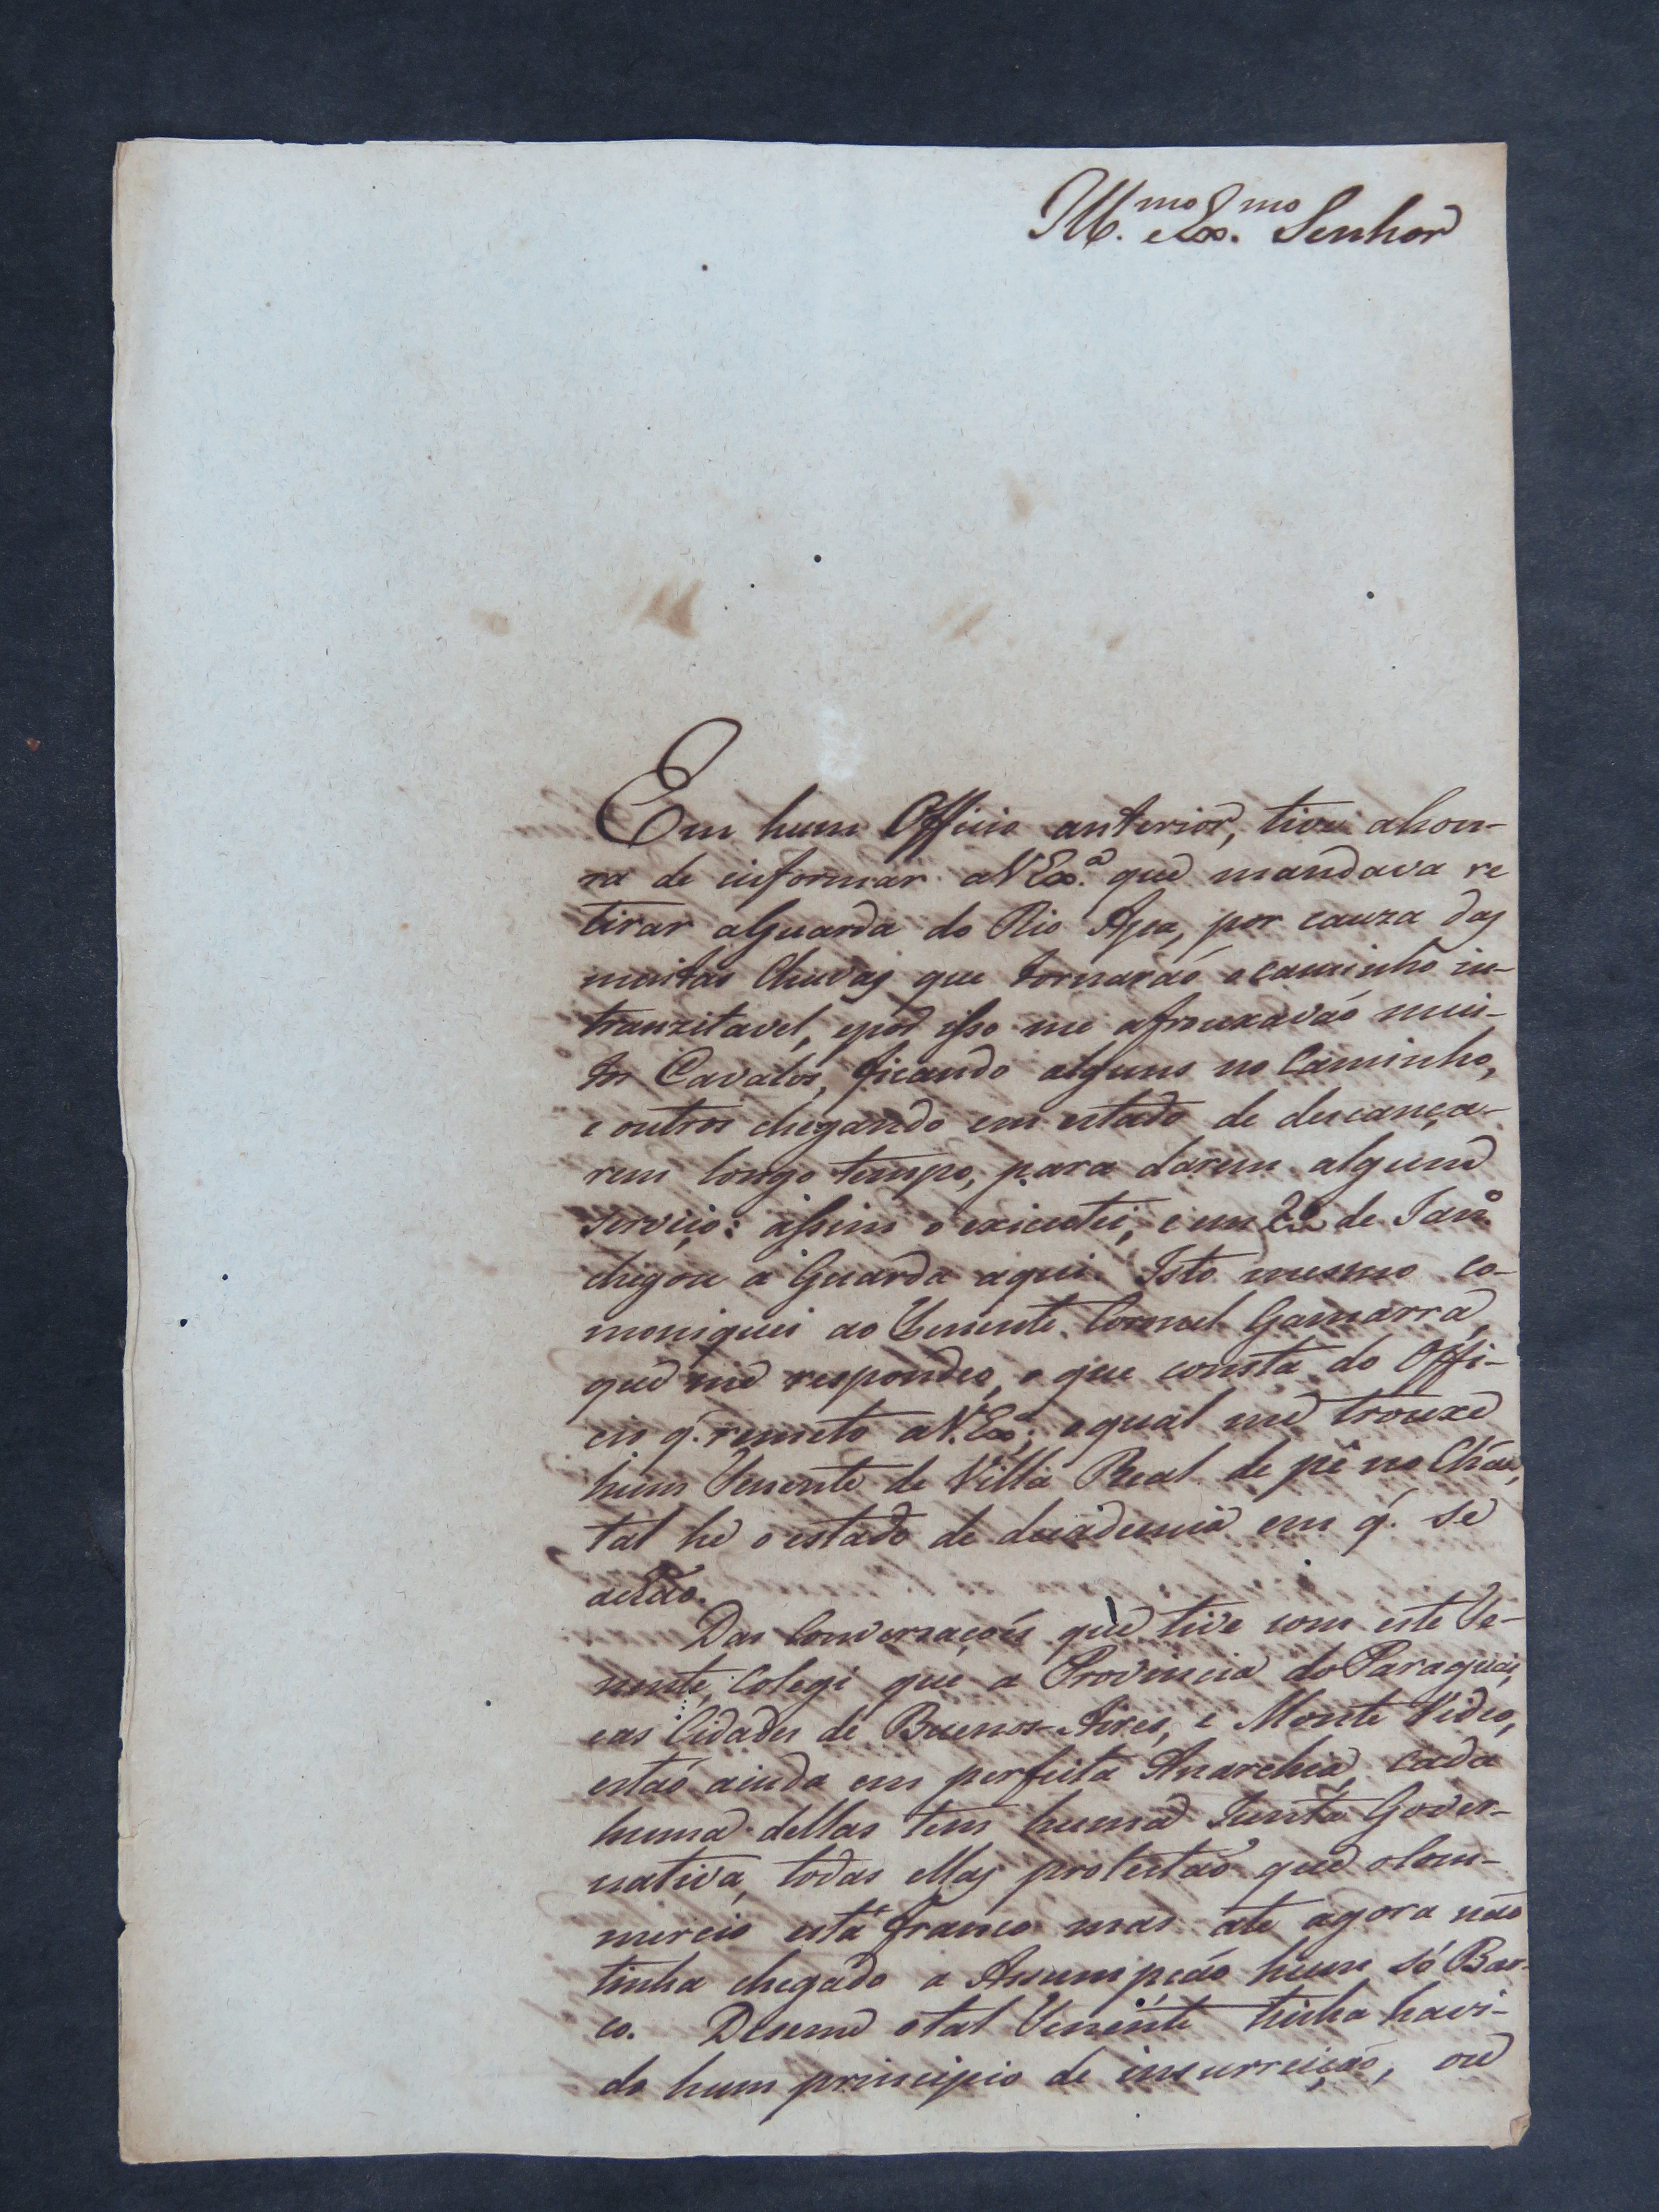 Ill.mo e Ex.mo Senhor
Em hum Officio anterior, tive ahon-
ra de informar aVEx.a que mandava re
tirar aGuarda do Rio Apa, por cauza das
muitas Chuvas que tornaraó o caminho in-
tranzitavel, epor isso me afrouxaváo mui-
tos Cavalos, ficando alguns no Caminho,
e outros chegando em estado de descança-
rem longo tempo, para darem algum
serviço: assim o executei, e em de Janro
chegou a Guarda aqui. Isto mesmo co-
moniquei ao Tenente Coronel Gamarra,
que me respondeo, o que consta do Offi-
cio q. remeto aV.Exa; oqual me trouxe
hum Tenente de Villa Real de pé no Cháo,
tal he o estado de decadencia em q. se
achão.
Das Conversaçoés que tive com este Te-
nente, Colegi que a Provincia do Paraguai,
eas Cidades de Buenos-Aires, e Monte Video,
estaó ainda em perfeita Anarchia, cada
huma dellas tem huma Junta Gover-
nativa, todas ellas protestaó que oCom-
mercio está franco mas até agora náo
tinha chegado a Assumpçáo hum só Bar-
co. Diseme otal Tenente tinha havi-
do hum principio de insurreiçáo, ou